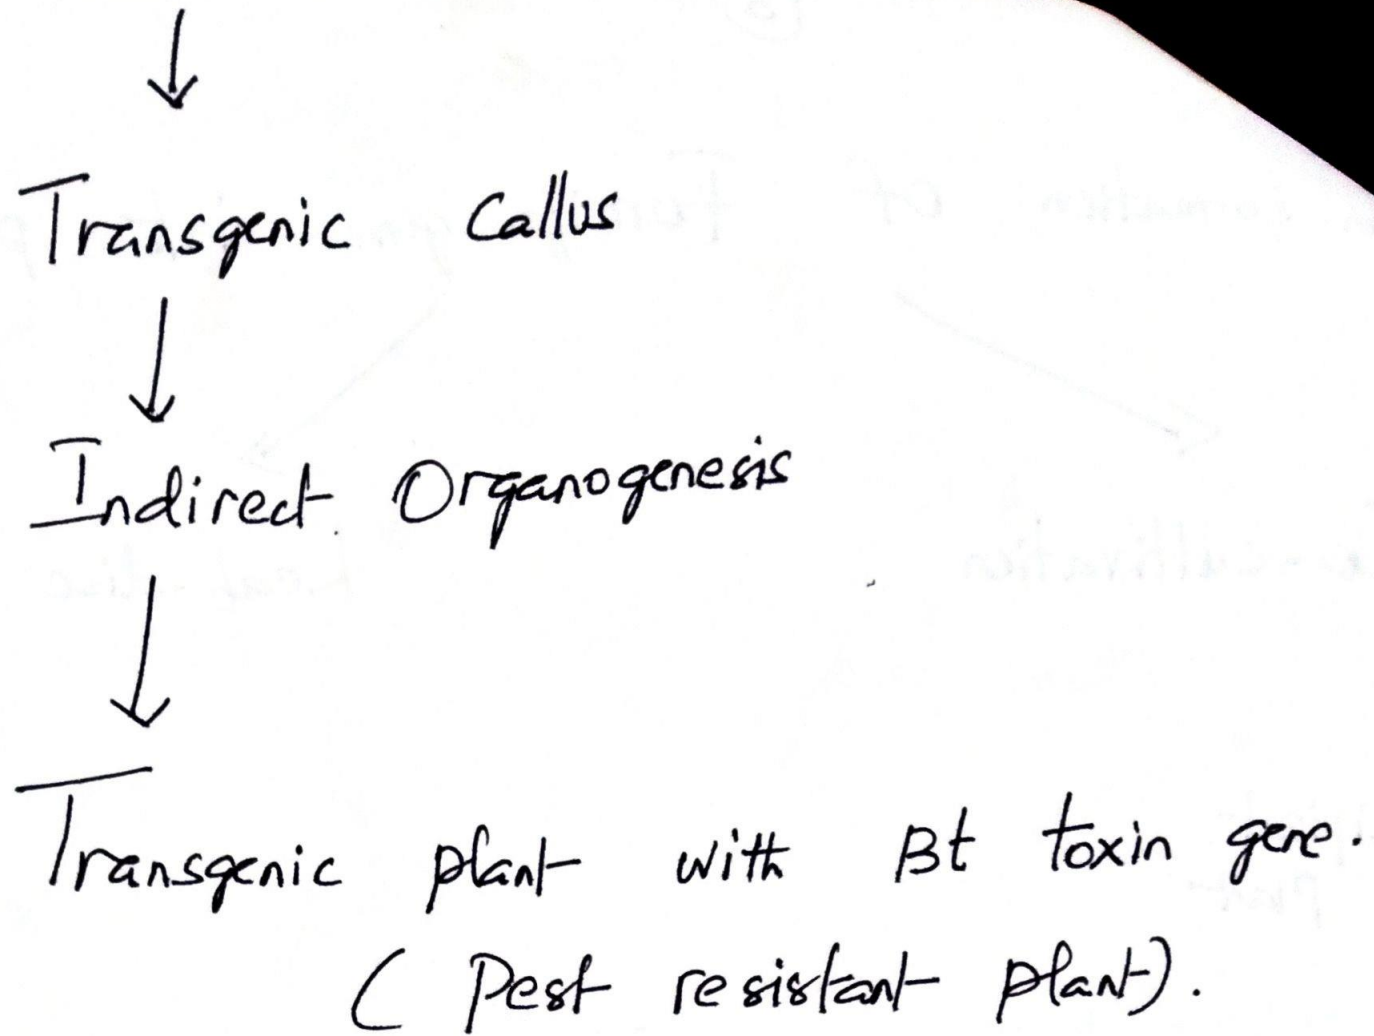 ↓
Transgenic Callus
↓
Indirect Organogenesis
↓
Transgenic plant with Bt toxin gene.
( Pest resistant plant).